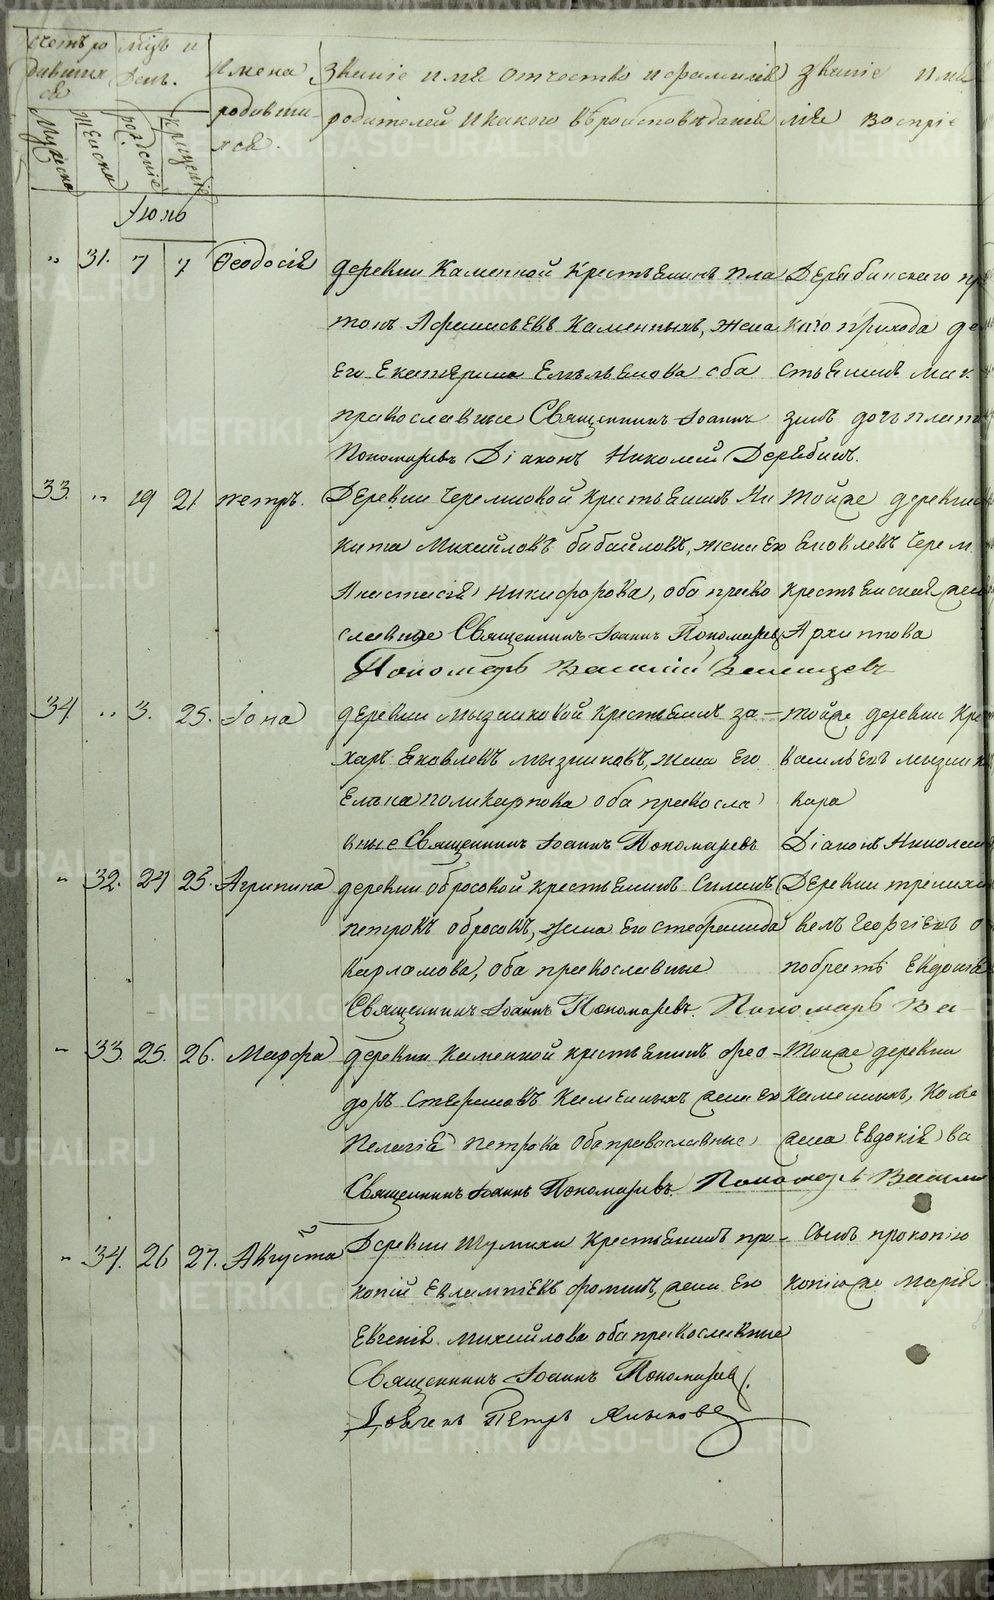 Счетъ ро дившихся
Мѣсяцъ и День.
Имена родившихся.
Званіе имя отчество и фамилія родителей и какого вѣроисповѣданія
званіе имя
лія воспріе
Мужеска
Женска
рожденіе
крещеніе
Іюль
" 31. 7 7 Ѳеодосія
деревни Каменной Крестьянинъ Пла
тонъ Афанасьевъ Каменныхъ, жена
Его Екатерина Емельянова оба
православные Священникъ Іоаннъ
Пономаревъ Діаконъ Николай Дерябинъ.
Дерябинскаго
каго прихода де
стьянинъ Мак
зимъ дочь плато
33. " 19 21 петръ.
Деревни Черемновой Крестьянинъ Ни
кита Михайловъ бабайловъ, жена Его
Анастасія Никифорова, оба право
славные Священникъ Іоаннъ Пономаревъ
Пономарь Василій
Тойже деревни
Яковлевъ Черем
Крестьянская жена
Архипова
34 " 3. 25. Іона
деревни мызниковой Крестьянинъ за–
харъ Яковлевъ мызниковъ, жена Его
Елена поликарпова оба правосла
вные Священникъ Іоаннъ Пономаревъ
тойже деревни Кре
Васильевъ мызник
вара
Діаконъ Николай
" 32. 24 25. Агрипина
деревни обросовой крестьянинъ Силинъ
петровъ обросовъ, жена Его стефанида
карламова, оба православные
Священникъ Іоаннъ Пономаревъ. Пономарь Ва–
Деревни трепихи
велъ Георгіевъ о
побратъ Евдокія
" 33. 25. 26. Марфа
деревни Каменной крестьянинъ фео–
доръ Стефановъ Каменныхъ жена Его
Пелагія Петрова Оба православные
Священникъ Іоаннъ Пономаревъ Пономарь Васили
Тойже деревни
Каменныхъ,
жена Евдокія ва
" 34. 26 27. Августа
Деревни Шумихи Крестьянинъ про–
копій Евлампіевъ фоминъ, жена Его
Евгенія михайлова оба православные
Священникъ Іоаннъ Пономаревъ.
Дьячекъ Петръ
Сынъ прокопію
копіюже марія
METRIKI.GASO-URAL.RU